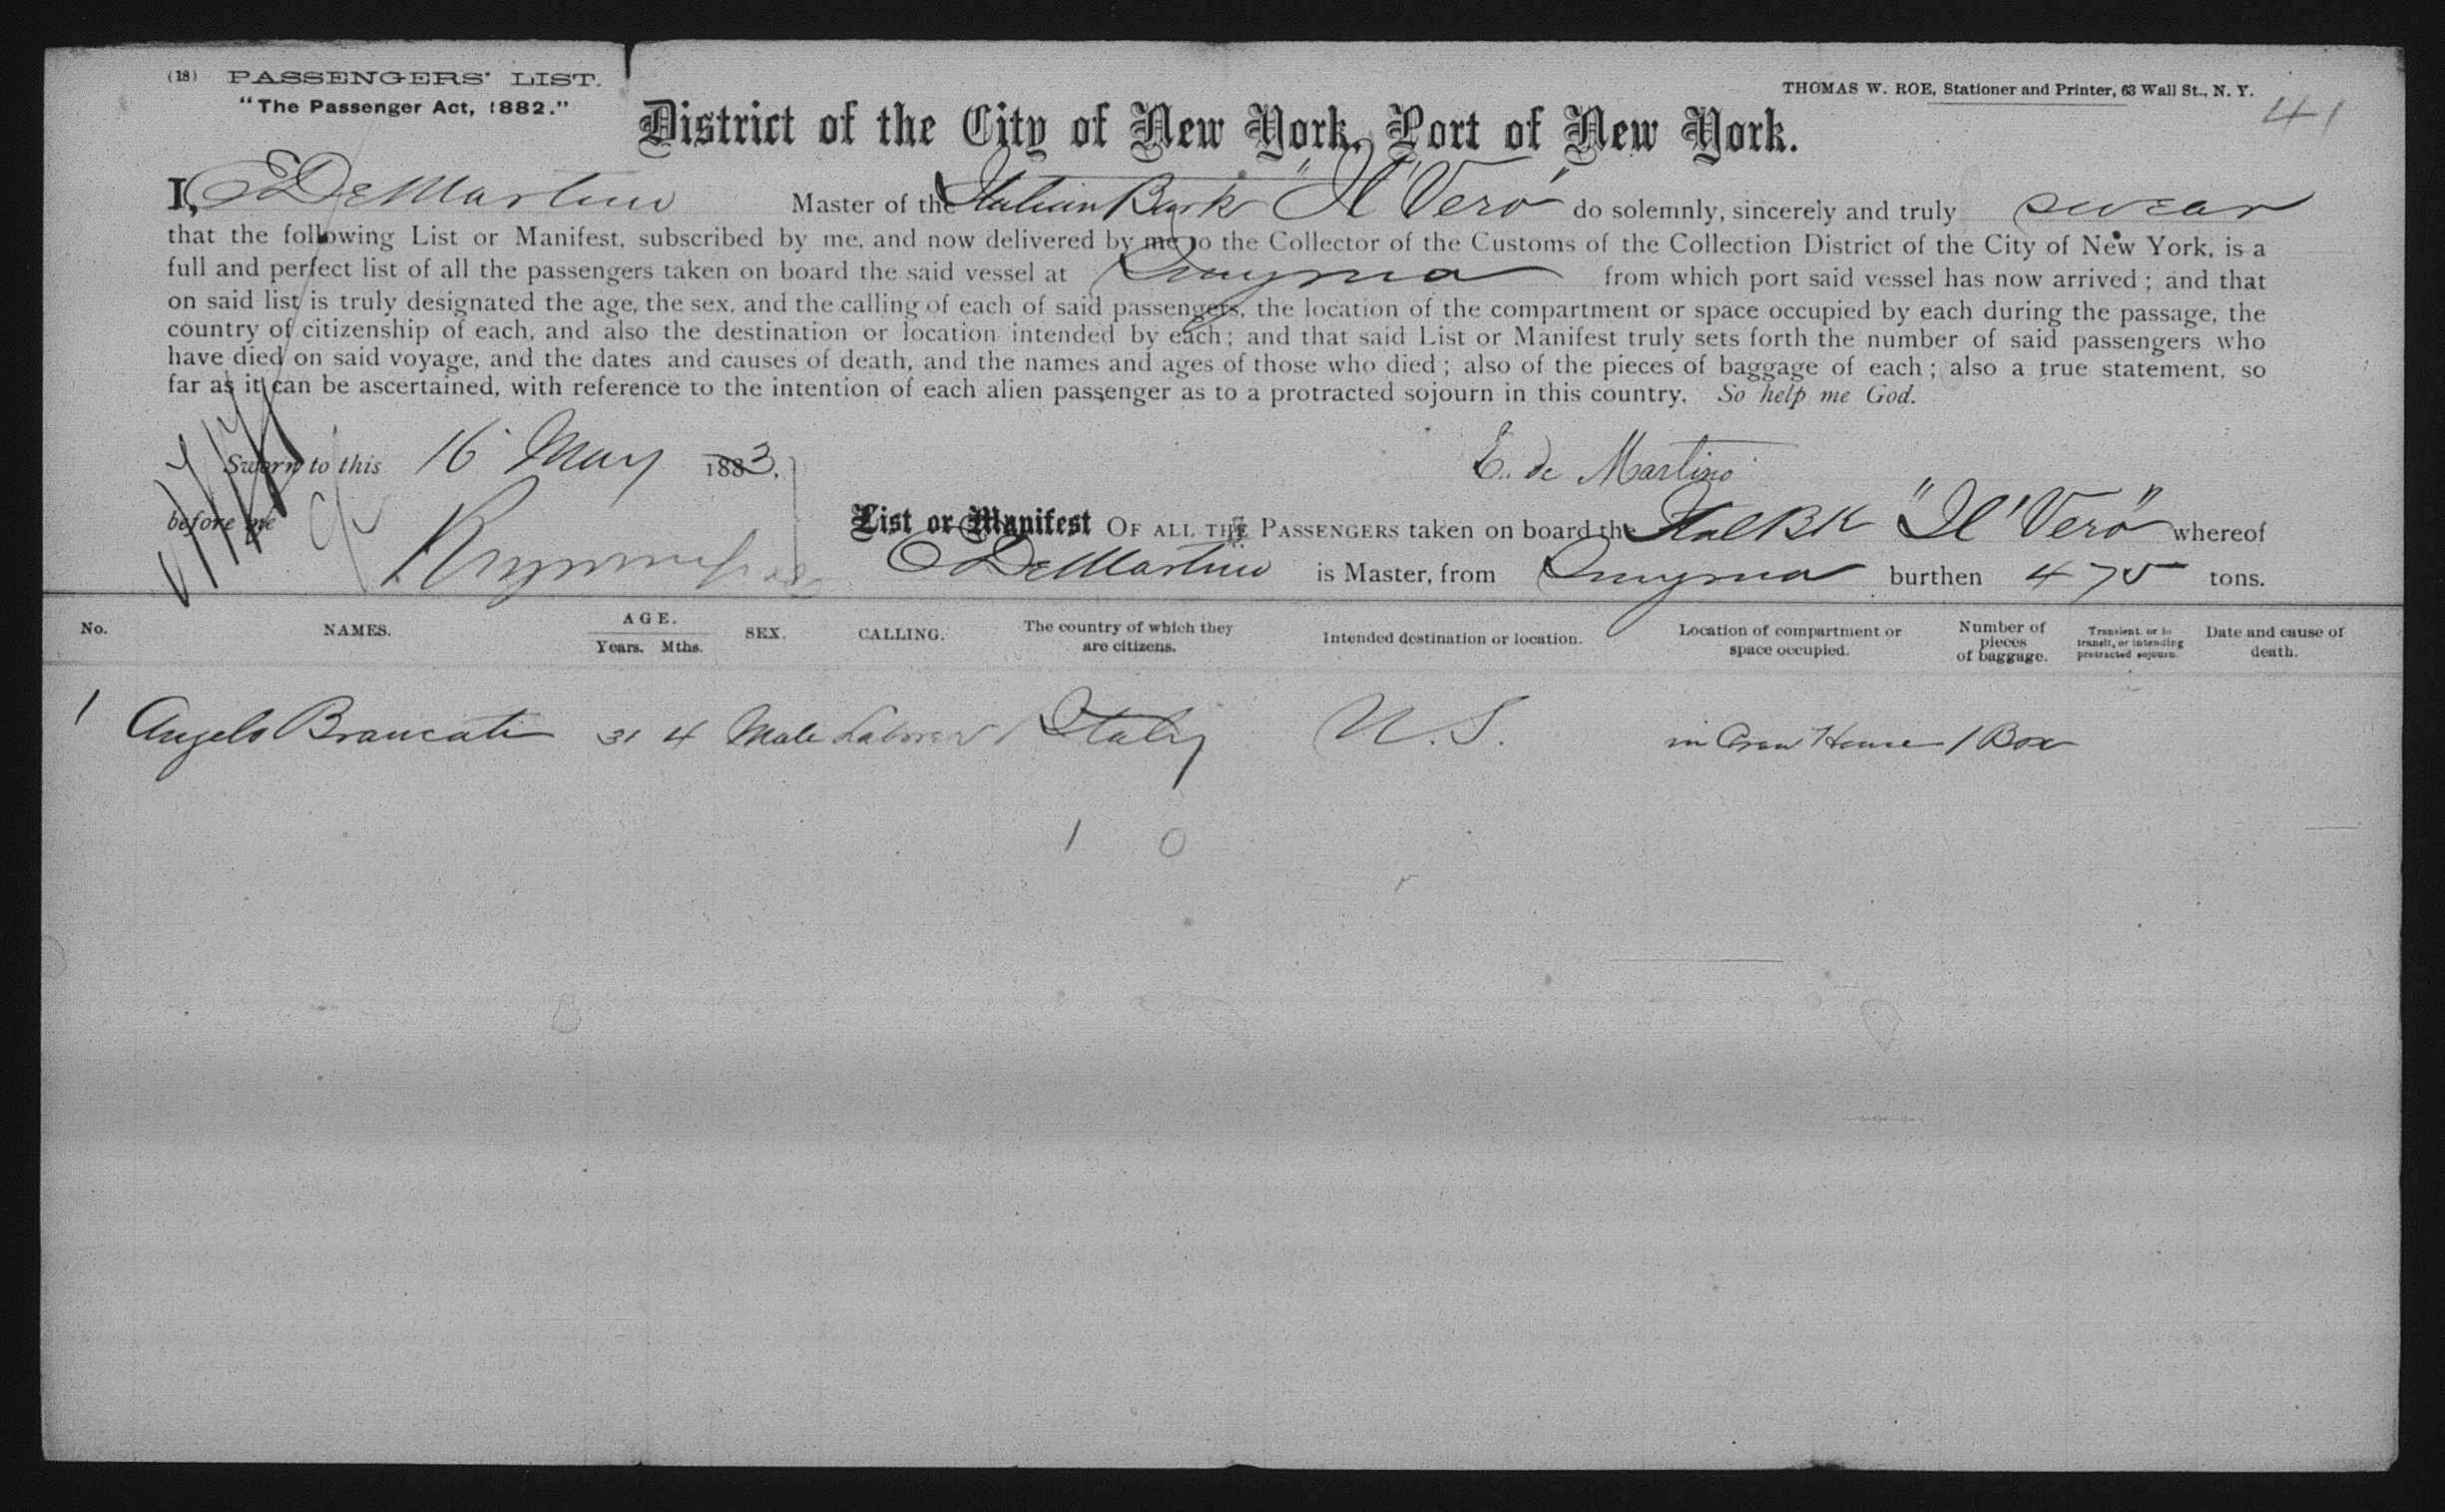 (18) PASSENGERS' LIST.
"The Passenger Act, 1882."
THOMAS W. ROE, Stationer and Printer, 63 Wall St., N. Y.
41
District of the City of New York, Port of New York.
I, E De Martino Master of the Italian Bark "Il Vero" do solemnly, sincerely and truly swear
that the following List or Manifest, subscribed by me, and now delivered by me to the Collector of the Customs of the Collection District of the City of New York, is a
full and perfect list of all the passengers taken on board the said vessel at Smyrna from which port said vessel has now arrived; and that
on said list is truly designated the age, the sex, and the calling of each of said passengers, the location of the compartment or space occupied by each during the passage, the
country of citizenship of each, and also the destination or location intended by each; and that said List or Manifest truly sets forth the number of said passengers who
have died on said voyage, and the dates and causes of death, and the names and ages of those who died; also of the pieces of baggage of each; also a true statement, so
far as it can be ascertained, with reference to the intention of each alien passenger as to a protracted sojourn in this country. So help me God.
Sworn to this 16 May 1883,
E. de Martino
before me
List or Manifest OF ALL THE PASSENGERS taken on board the Ital Bk "Il Vero" whereof
E De Martino is Master, from Smyrna burthen 475 tons.
No. NAMES. AGE. Years. Mths. SEX. CALLING. The country of which they are citizens. Intended destination or location. Location of compartment or space occupied. Number of pieces of baggage. Transient, or in transit, or intending protracted sojourn. Date and cause of death.
1 Angelo Brancati 31 4 Male Laborer / Italy U.S. in Crew House 1 Box
1 0